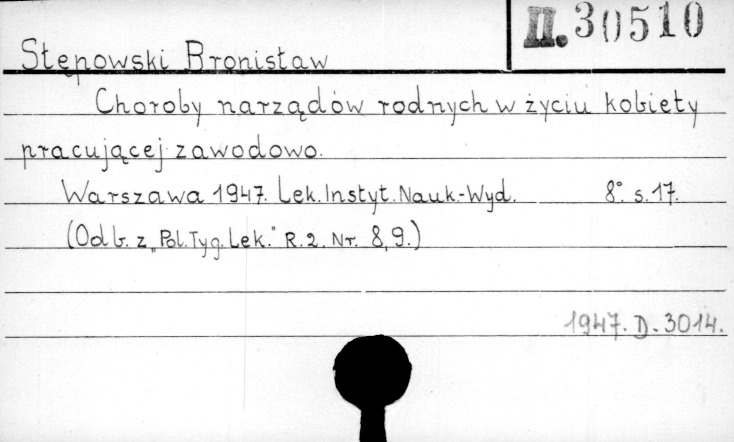 II. 30510
Stępowski Bronisław
Choroby narządów rodnych w życiu kobiety
pracującej zawodowo.
Warszawa 1947. Lek. Instyt. Nauk.-Wyd. 8° s. 17.
(Odb. z „Pol. Tyg. Lek." R. 2. Nr. 8, 9.)
1947. D. 3014.